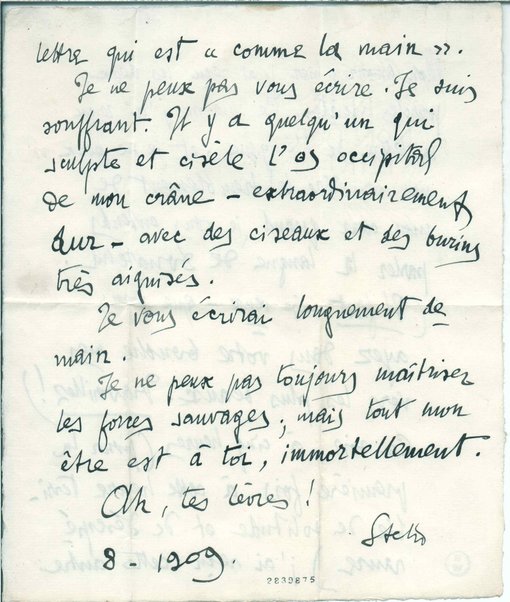 lettre qui est « comme la main ».
Je ne peux pas vous écrire. Je suis
souffrant. Il y a quelqu'un qui
sculpte et cisèle l'os occipital
de mon crâne – extraordinairement
dur – avec des ciseaux et des burins
très aiguisés.
Je vous écrirai longuement de-
main.
Je ne peux pas toujours maîtriser
les forces sauvages, mais tout mon
être est à toi, immortellement.
Ah, tes lèvres!
8 - 1909.
2839875